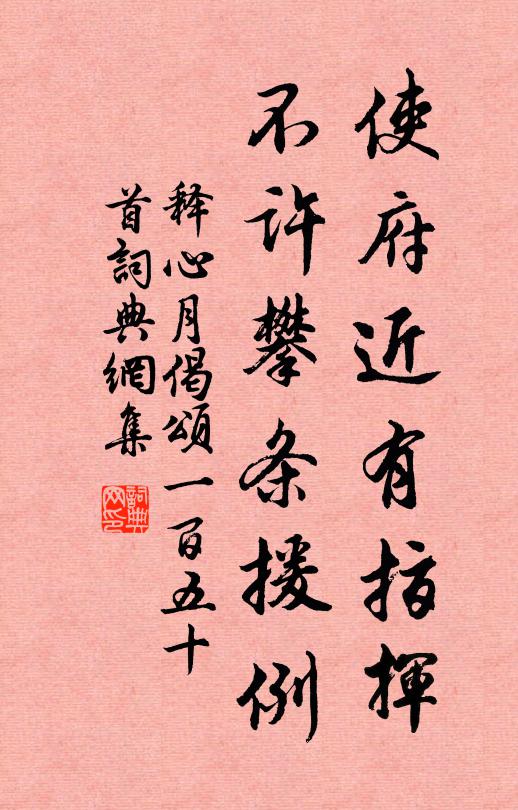 使府近有指揮
不许攀条援例
释心月偈頌一百五十
首詞典網集
詞典
网印